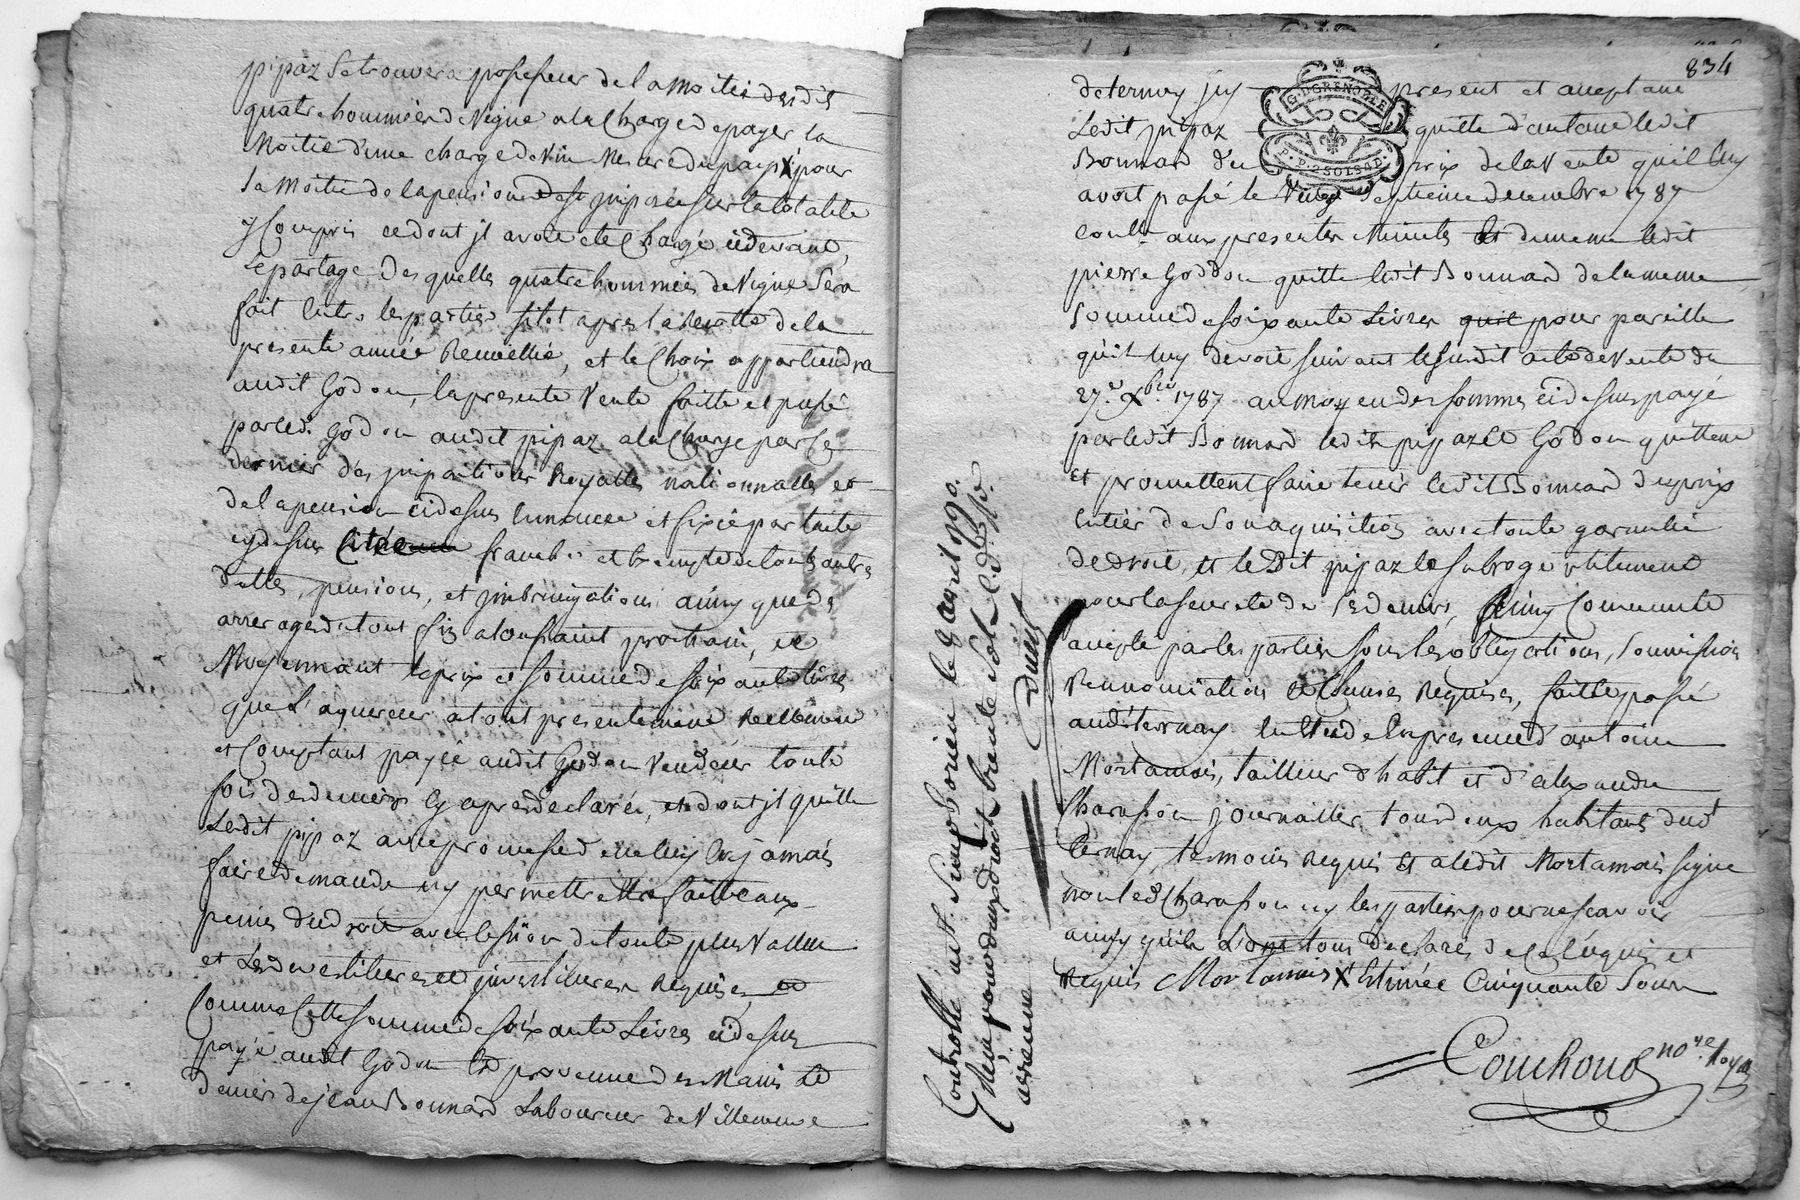 pipaz Se trouvera possesseur de la Moitié desdit
quatre hommées de Vigne a la Charge de payer la
Moitié d'une charge de vin Mesure du pays X pour
Sa Moitié de la pension imposée sur la totalité
y Compris ce dont il avoit eté Chargé cidevant,
Le partage des quelles quatre hommées de Vigne Sera
fait Entre les parties sitot apres la Recolte de la
presente année Recueillie, et le Choix appartiendra
audit Godon, la presente Vente faitte et passé
par led. Godon audit pipaz a la Charge par Ce
dernier des impositions Royalles nationnalles et
de la pension cidessus enoncée et fixée par traité
cydessus franche et Exempte de touts autres
dettes, pensions, et imbrinqations ainsy que de
arrerages de tout fin a toussaint prochain, et
Moyennant le prix et somme de soixante livres
que L'aquereur a tout présentement Reellement
et Comptant payée audit Godon Vendeur toute
fois des deniers Cy apres declarés, et dont il quitte
Ledit pipaz avec promesse de ne luy En jamais
faire demande ny permettre Etre faitte aux
peines du droit avec la cession de toute plus Value
et Les devestitures et investitures Requises, et
Comme Cette somme de soixante Livres cidessus
payé audit Godon Est provenue des Mains et
deniers de jean Bonnard Laboureur de Villeneuve
834
de ternay jcy present et aceptant
G. D GRENOBLE
P. P. 2 SOLS 8 D
Ledit pipaz quitte d'autant ledit
Bonnard du prix de la Vente quil luy
avoit passé le Vingt Septieme decembre 1787
aux presentes Minutes Et de meme ledit
pierre Goddon quitte ledit Bonnard de la meme
Somme de soixante Livres quil pour pareille
quil luy devoit suivant le susdit acte de Vente du
27e Xbre 1787 au Moyen des sommes cidessus payé
par ledit Bonnard ledit pipaz Et Godon quittent
Et promettent faire tenir ledit Bonnard du prix
Entier de Son aquisition avec toute garantie
de droit, et le Dit pipaz le subroge
pour la seureté de Ses deniers, Ainsy Convenu Et
accepté par les parties sous les obligations, soumissions
Rennonciations Et Clauses Requises, faitte passé
audit ternay Etude En presence d'antoine
Mortamais, tailleur d'habit et d'alexandre
Charassou journallier, tous deux habitants dud
ternay, temoins Requis Et a ledit Mortamais signé
non led Charassou ny les parties pour ne scavoir
ainsy quils L'ont tous declarés de ce Enquis et
Requis Mortamais X Estimée Cinquante Sous
Couchoud nore Royal
Controllé a St. Simphorien le 8 avril 1790.
Reçu pour deux droits trente sols